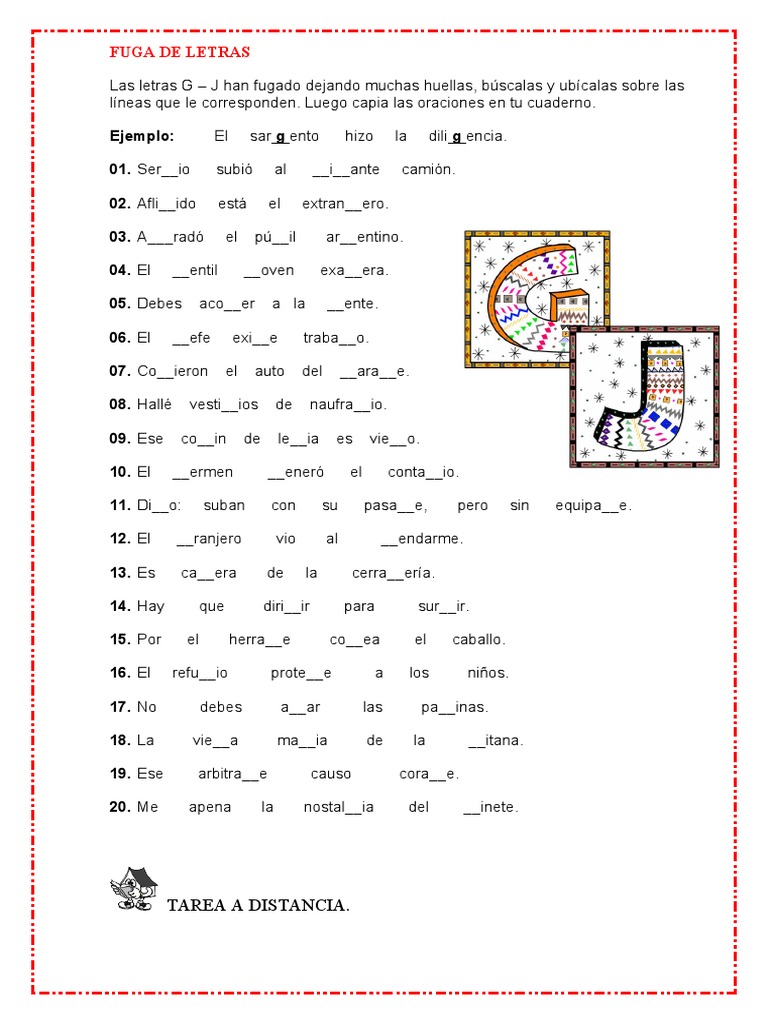 FUGA DE LETRAS
Las letras G – J han fugado dejando muchas huellas, búscalas y ubícalas sobre las
líneas que le corresponden. Luego capia las oraciones en tu cuaderno.
Ejemplo: El sar_g_ento hizo la dili_g_encia.
01. Ser__io subió al __i__ante camión.
02. Afli__ido está el extran__ero.
03. A___radó el pú__il ar__entino.
04. El __entil __oven exa__era.
05. Debes aco__er a la __ente.
06. El __efe exi__e traba__o.
07. Co__ieron el auto del __ara__e.
08. Hallé vesti__ios de naufra__io.
09. Ese co__in de le__ia es vie__o.
10. El __ermen __eneró el conta__io.
11. Di__o: suban con su pasa__e, pero sin equipa__e.
12. El __ranjero vio al __endarme.
13. Es ca__era de la cerra__ería.
14. Hay que diri__ir para sur__ir.
15. Por el herra__e co__ea el caballo.
16. El refu__io prote__e a los niños.
17. No debes a__ar las pa__inas.
18. La vie__a ma__ia de la __itana.
19. Ese arbitra__e causo cora__e.
20. Me apena la nostal__ia del __inete.
G
J
TAREA A DISTANCIA.